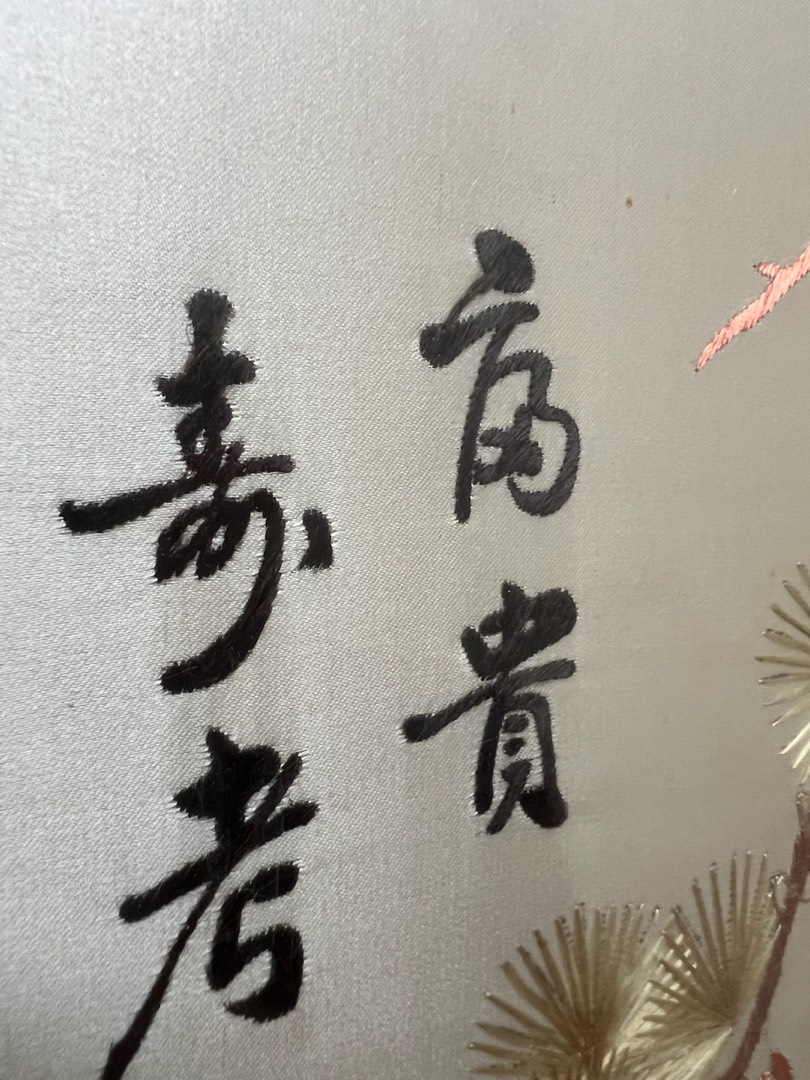 富貴
壽考